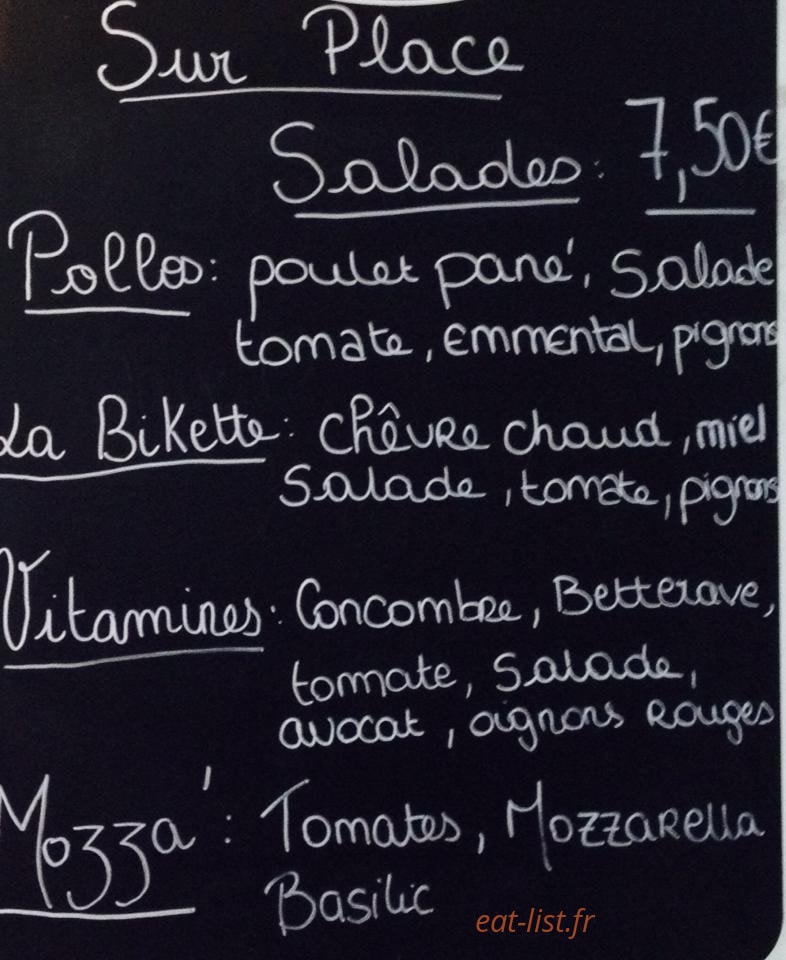 Sur Place
Salades: 7,50€
Pollos: poulet pané, Salade
tomate, emmental, pignons
La Bikette: chêvre chaud, miel
Salade, tomate, pignons
Vitamines: Concombre, Betterave,
tomate, Salade,
avocat, oignons rouges
Mozza': Tomates, Mozzarella
Basilic
eat-list.fr